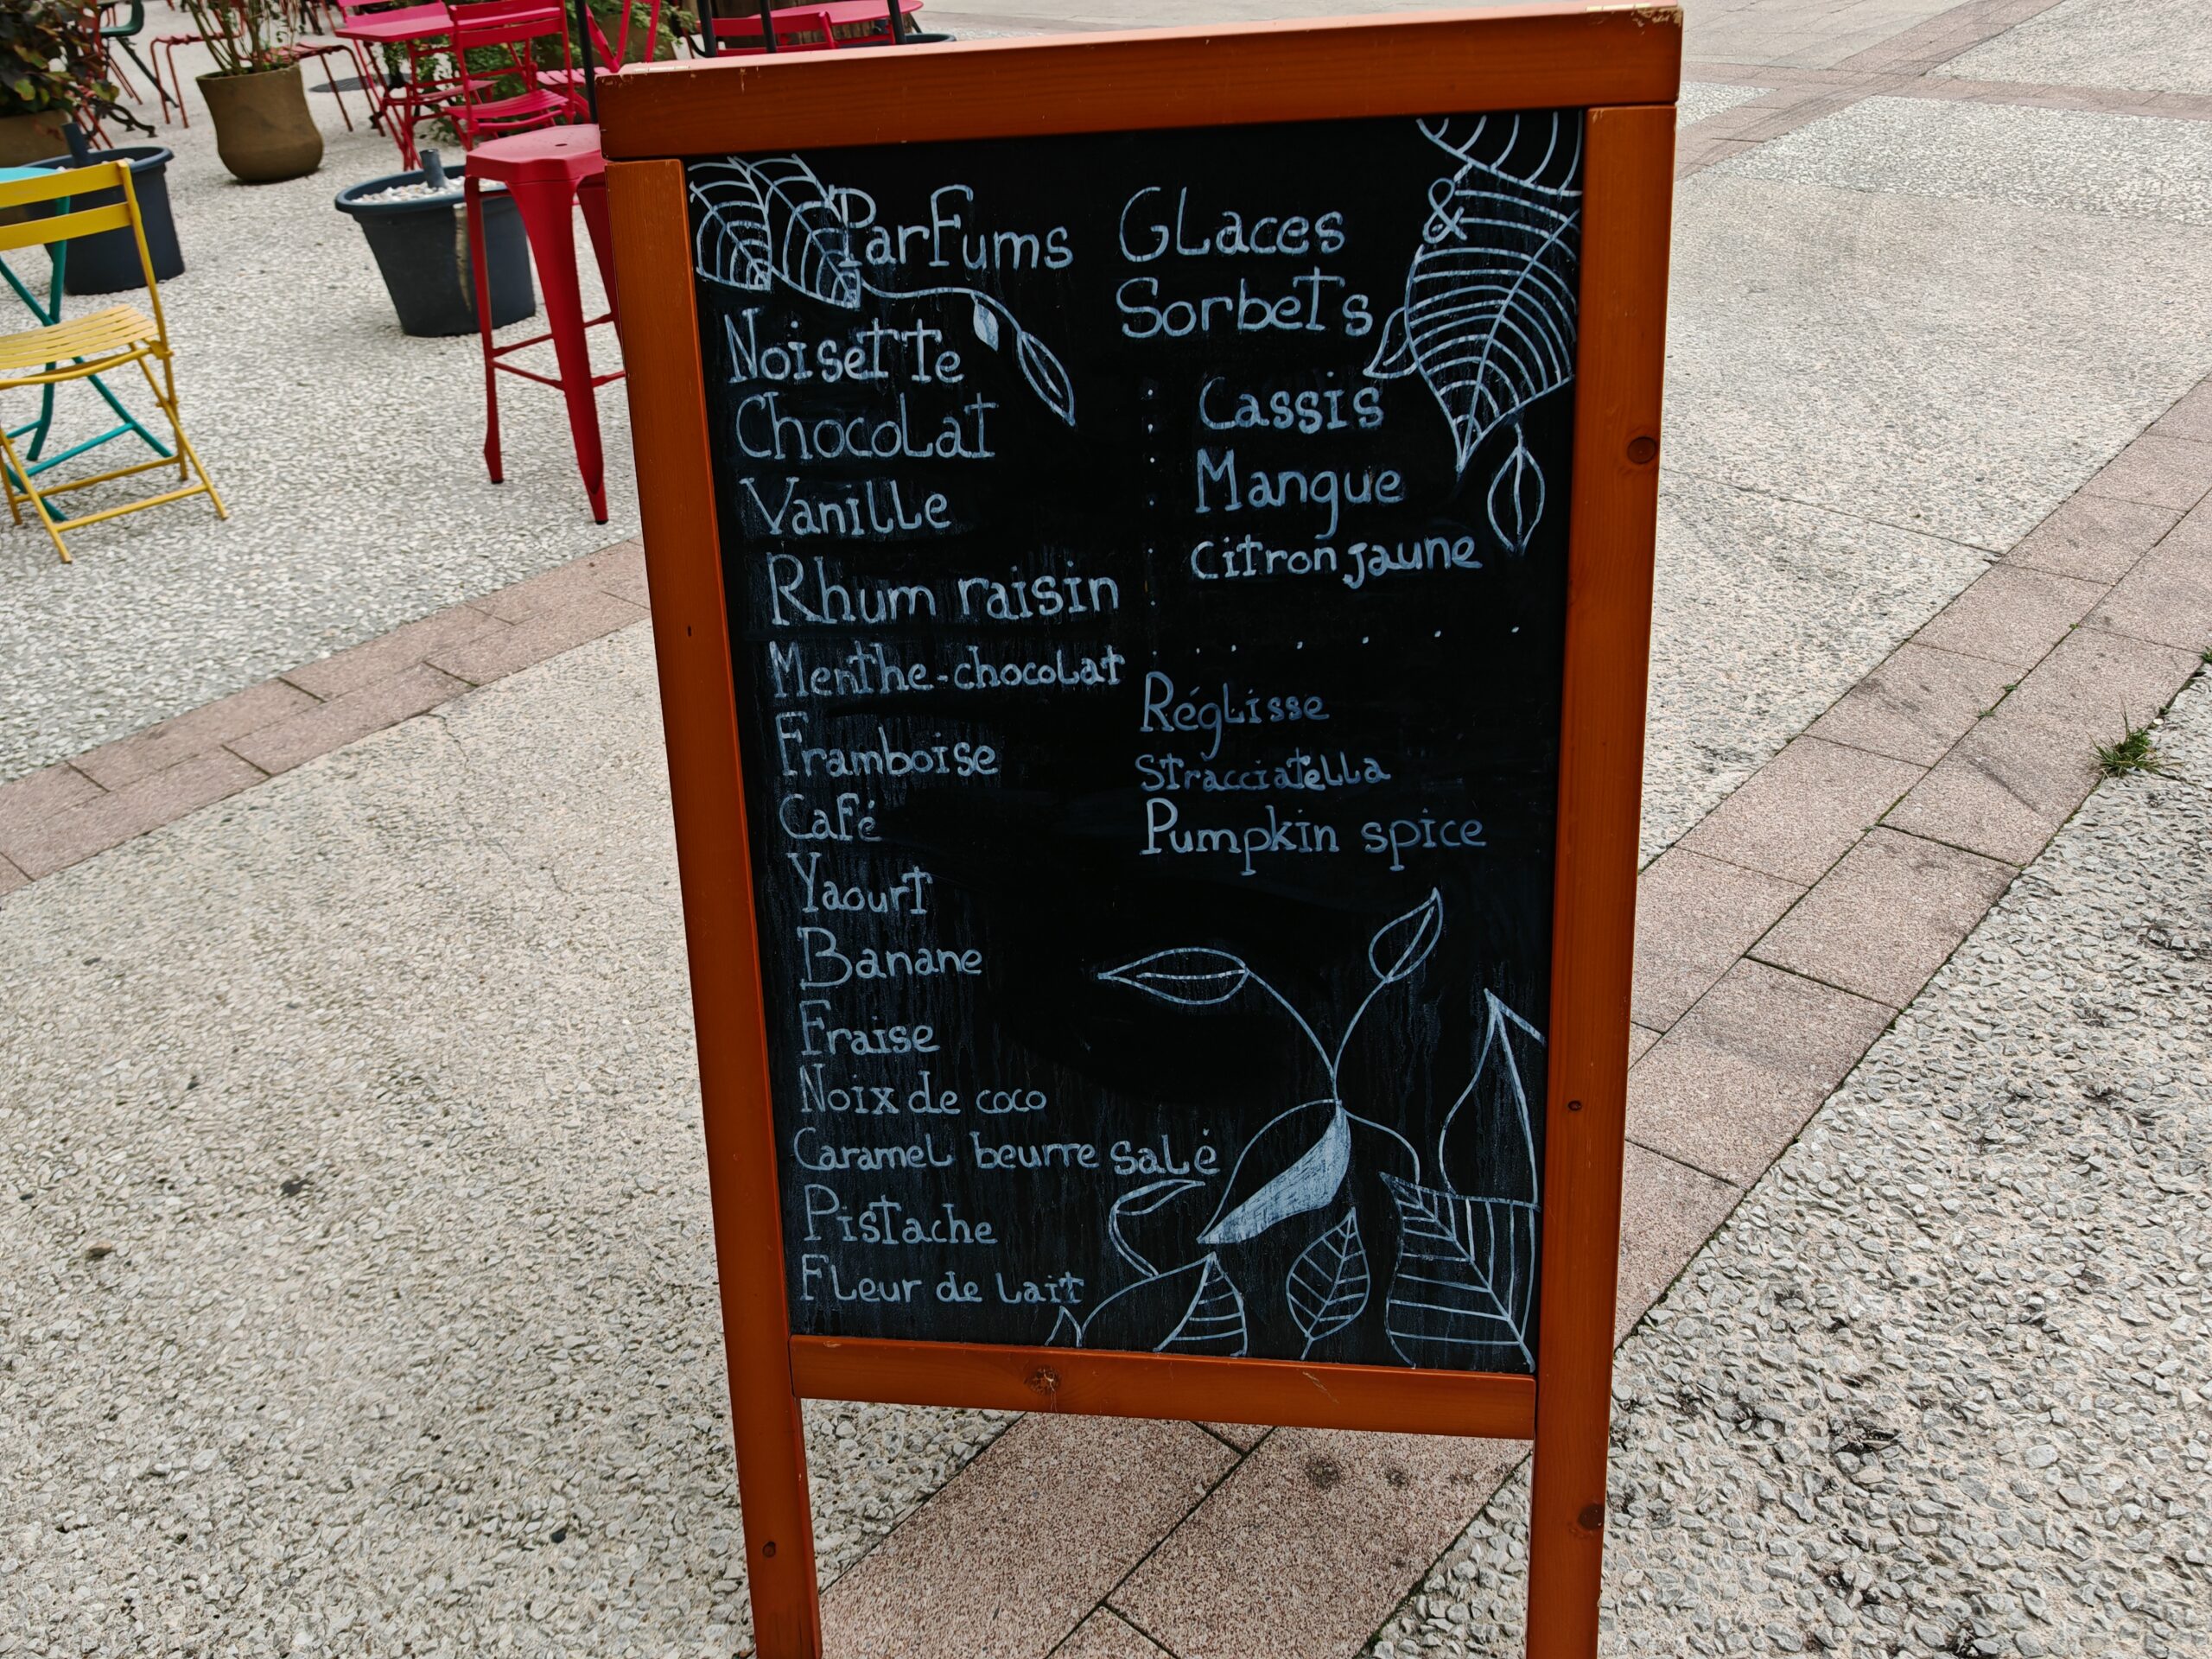 Parfums Glaces &
Sorbets
Noisette
Chocolat
Vanille
Rhum raisin
Menthe-chocolat
Framboise
Café
Yaourt
Banane
Fraise
Noix de coco
Caramel beurre salé
Pistache
Fleur de lait
Cassis
Mangue
Citron jaune
Réglisse
Stracciatella
Pumpkin spice